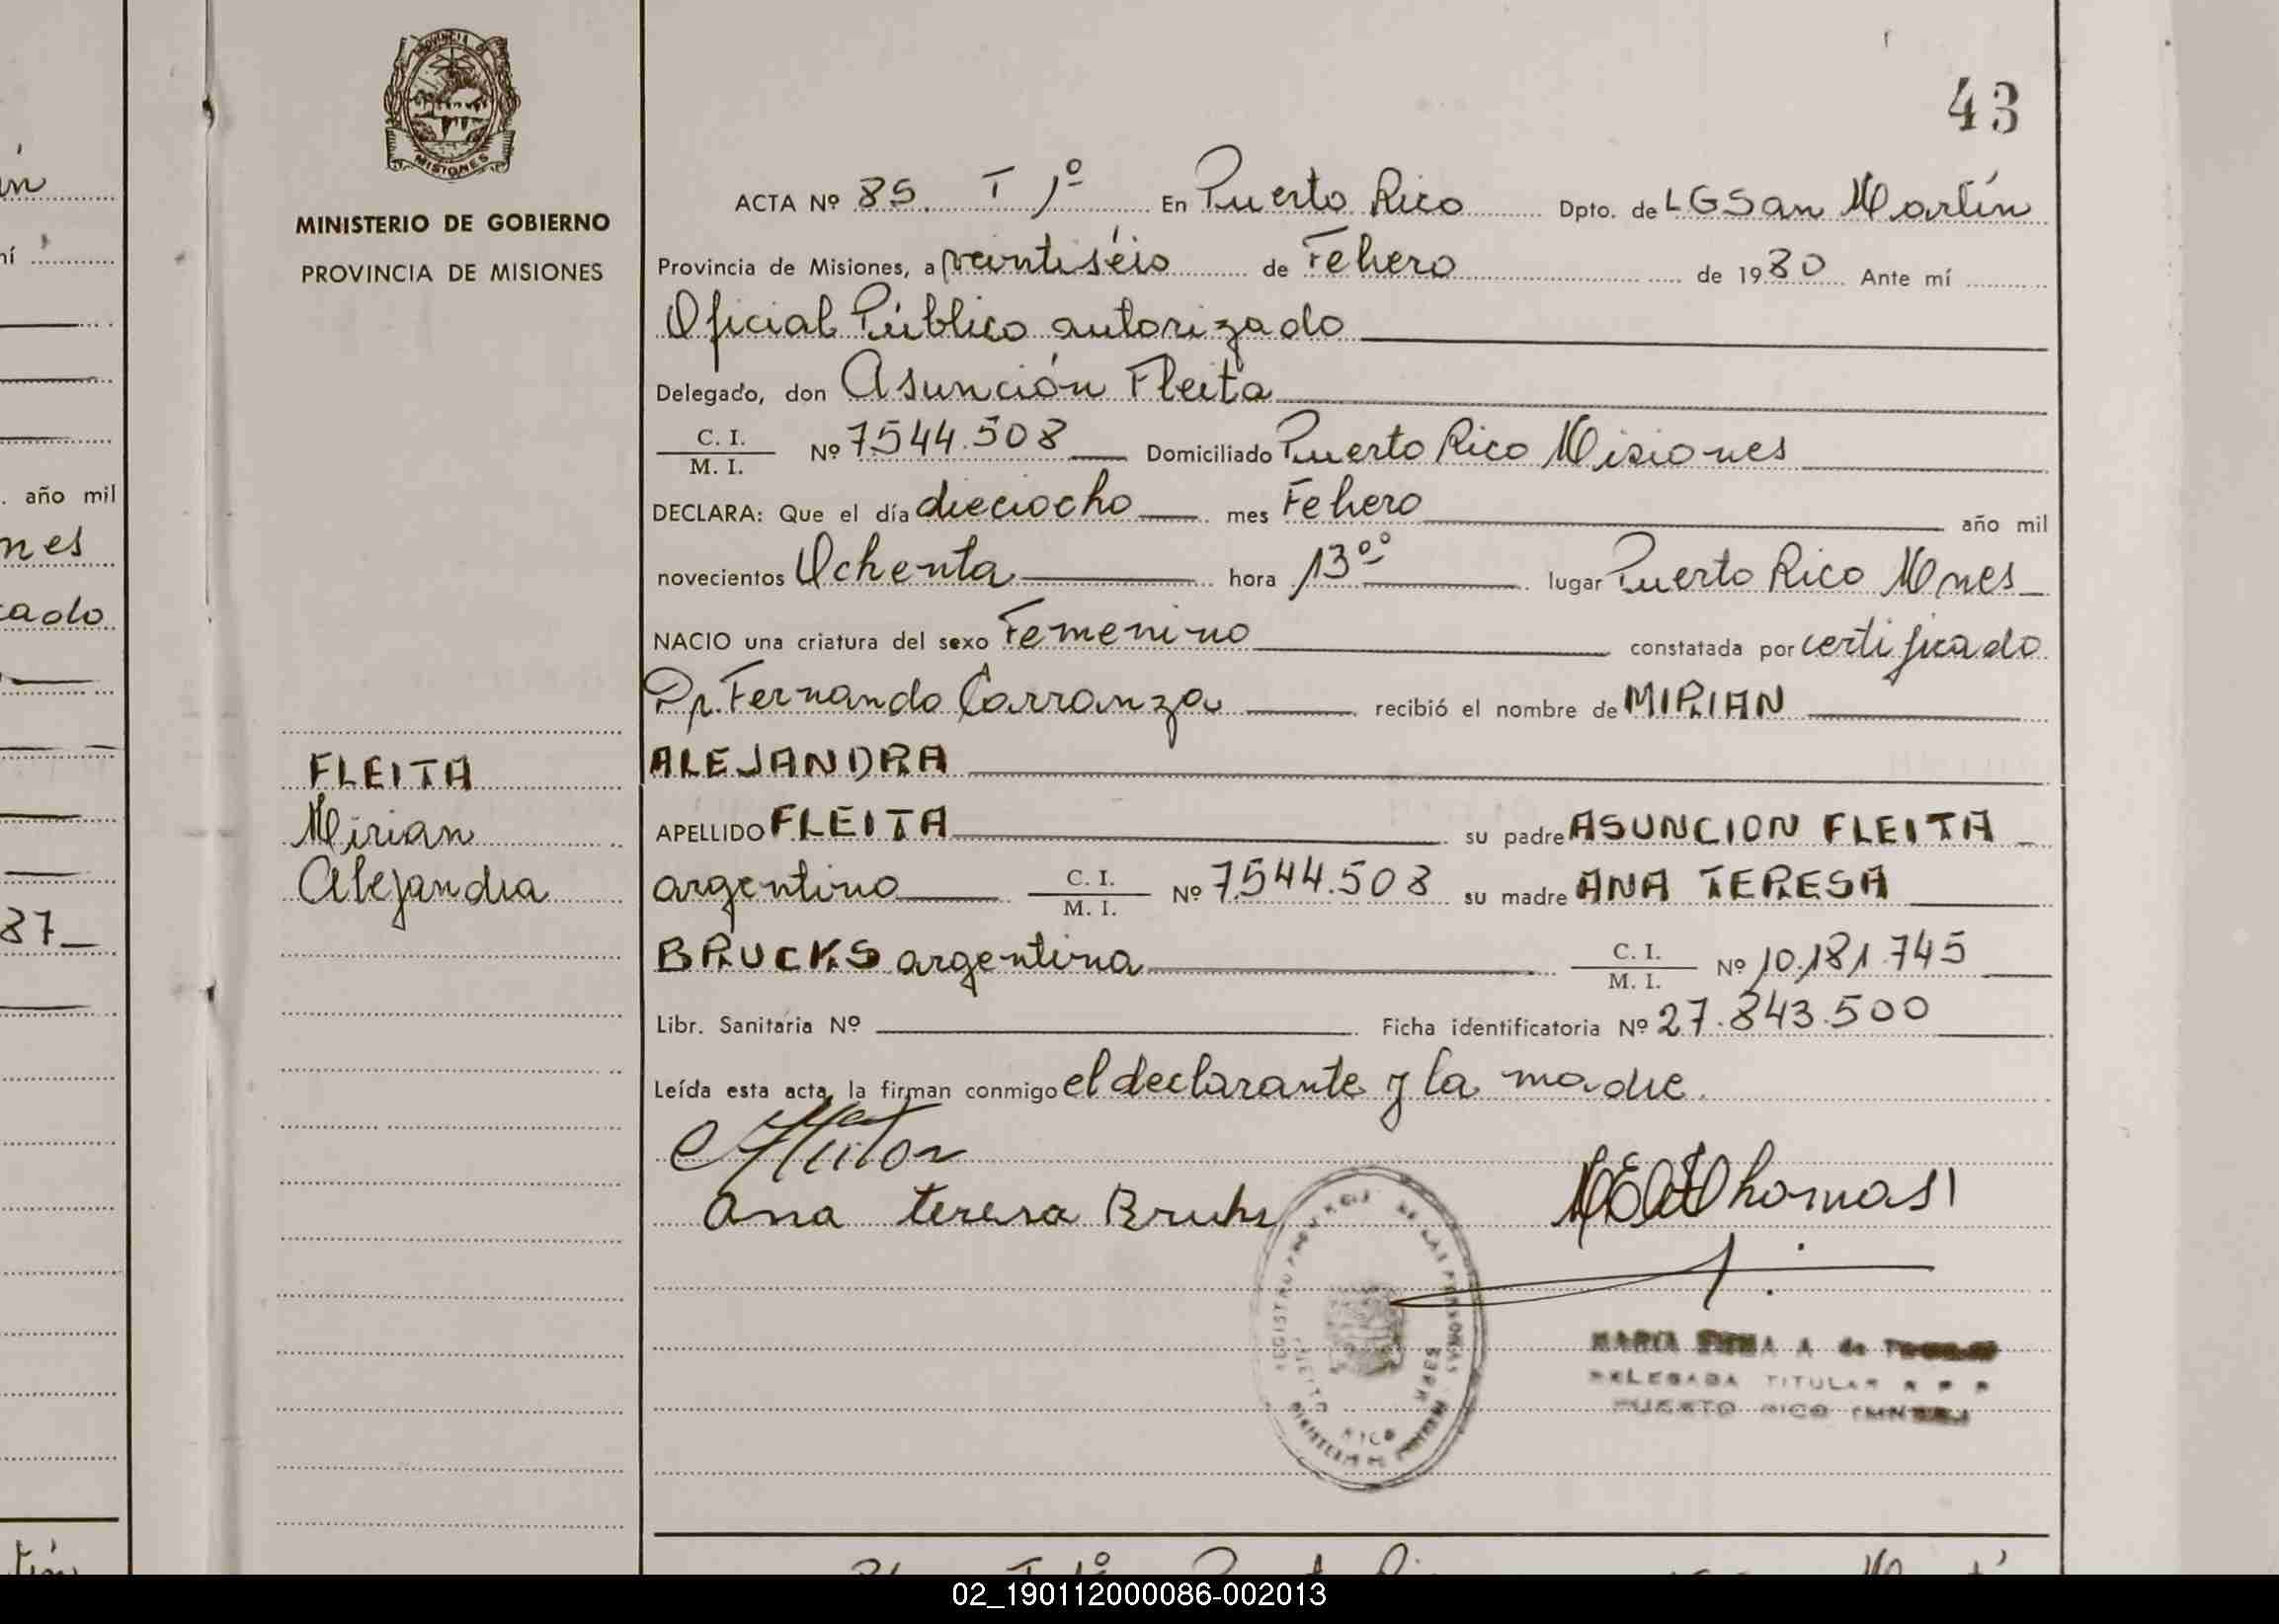 43
PROVINCIA DE
MISIONES
MINISTERIO DE GOBIERNO
PROVINCIA DE MISIONES
ACTA Nº 85. T 1º En Puerto Rico Dpto. de LGSan Martín
Provincia de Misiones, a veintiséis de Febrero de 1980 Ante mí
Oficial Público autorizado
Delegado, don Asunción Fleita
C. I.
M. I. Nº 7544.508 Domiciliado Puerto Rico Misiones
DECLARA: Que el día dieciocho mes Febrero año mil
novecientos Ochenta hora 13ºº lugar Puerto Rico Mnes
NACIO una criatura del sexo Femenino constatada por certificado
Dr. Fernando Carranza recibió el nombre de MIRIAN
ALEJANDRA
APELLIDO FLEITA su padre ASUNCION FLEITA
argentino C. I.
M. I. Nº 7.544.508 su madre ANA TERESA
BRUCKS argentina C. I.
M. I. Nº 10.181.745
Libr. Sanitaria Nº Ficha identificatoria Nº 27.843.500
Leída esta acta, la firman conmigo el declarante y la madre.
Ana teresa Bruks
DELEGADA TITULAR R P P
PUERTO RICO (MNES)
FLEITA
Mirian
Alejandra
año mil
nes
cado
87
02_190112000086-002013